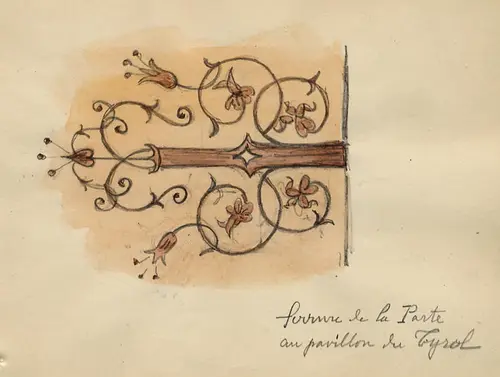 ferrure de la Porte
au pavillon du Tyrol